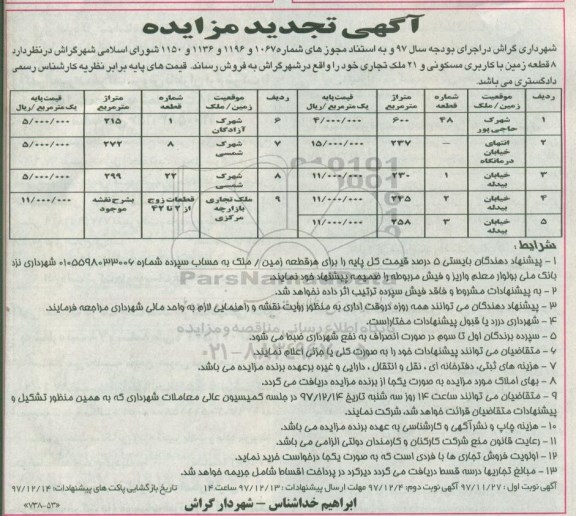 آگهی تجدید مزایده
شهرداری گراش در اجرای بودجه سال ۹۷ و به استناد مجوز های شماره ۱۰۶۷ و ۱۱۹۶ و ۱۱۳۶ و ۱۱۵۰ شورای اسلامی شهر گراش در نظر دارد
۸ قطعه زمین با کاربری مسکونی و ۲۱ ملک تجاری خود را واقع در شهر گراش به فروش رساند. قیمت های پایه برابر نظریه کارشناس رسمی
دادگستری می باشد.
ردیف موقعیت زمین/ملک شماره قطعه متراژ مترمربع قیمت پایه یک مترمربع/ریال ردیف موقعیت زمین/ملک شماره قطعه متراژ مترمربع قیمت پایه یک مترمربع/ریال
۱ شهرک حاجی پور ۴۸ ۶۰۰ ۴/۰۰۰/۰۰۰ ۶ شهرک آزادگان ۱ ۲۱۵ ۵/۰۰۰/۰۰۰
۲ انتهای خیابان درمانگاه — ۲۳۷ ۱۵/۰۰۰/۰۰۰ ۷ شهرک شمسی ۸ ۲۷۲ ۵/۰۰۰/۰۰۰
۳ خیابان بیدله ۱ ۲۳۰ ۱۱/۰۰۰/۰۰۰ ۸ شهرک شمسی ۲۲ ۲۹۹ ۵/۰۰۰/۰۰۰
۴ خیابان بیدله ۲ ۲۴۵ ۱۱/۰۰۰/۰۰۰ ۹ ملک تجاری بازارچه مرکزی قطعات زوج از ۲ تا ۴۲ بشرح نقشه موجود ۱۱/۰۰۰/۰۰۰
۵ خیابان بیدله ۳ ۲۵۸ ۱۱/۰۰۰/۰۰۰
شرایط :
۱ - پیشنهاد دهندگان بایستی ۵ درصد قیمت کل پایه را برای هر قطعه زمین / ملک به حساب سپرده شماره ۰۱۰۵۵۹۸۰۳۳۰۰۶ شهرداری نزد
بانک ملی بولوار معلم واریز و فیش مربوطه را ضمیمه پیشنهاد خود نمایند.
۲ - به پیشنهادات مشروط و فاقد فیش سپرده ترتیب اثر داده نخواهد شد.
۳ - پیشنهاد دهندگان می توانند همه روزه در وقت اداری به منظور رویت نقشه و راهنمایی لازم به واحد مالی شهرداری مراجعه فرمایند.
۴ - شهرداری در رد یا قبول پیشنهادات مختار است.
۵ - سپرده برندگان اول تا سوم در صورت انصراف به نفع شهرداری ضبط می شود.
۶ - متقاضیان می توانند پیشنهادات خود را به صورت کلی یا جزئی اعلام نمایند.
۷ - هزینه های ثبتی، دفترخانه ای ، نقل و انتقال ، دارایی و غیره بر عهده برنده مزایده می باشد.
۸ - بهای املاک مورد مزایده به صورت یکجا از برنده مزایده دریافت می گردد.
۹ - متقاضیان می توانند ساعت ۱۴ روز سه شنبه تاریخ ۹۷/۱۲/۱۴ در جلسه کمیسیون عالی معاملات شهرداری که به همین منظور تشکیل و
پیشنهادات متقاضیان قرائت خواهد شد، شرکت نمایند.
۱۰ - هزینه چاپ و نشر آگهی و کارشناسی به عهده برنده مزایده می باشد.
۱۱ - رعایت قانون منع شرکت کارکنان و کارمندان دولتی الزامی می باشد.
۱۲ - اولویت فروش تجاری ها با فردی است که به صورت یکجا درخواست خرید نماید.
۱۳ - مبالغ تجاریها در سه قسط دریافت می گردد دیرکرد در پرداخت اقساط شامل جریمه خواهد شد.
آگهی نوبت اول : ۹۷/۱۱/۲۷ آگهی نوبت دوم: ۹۷/۱۲/۴ مهلت ارسال پیشنهادات : ۹۷/۱۲/۱۳ ساعت ۱۴ تاریخ بازگشایی پاکت های پیشنهادات: ۹۷/۱۲/۱۴
ابراهیم خداشناس - شهردار گراش
«۷۳۸۰۵۳»
ParsNamadData
پایگاه اطلاع رسانی مناقصه و مزایده
۰۲۱-۸۸۳۴۹۶۷۰